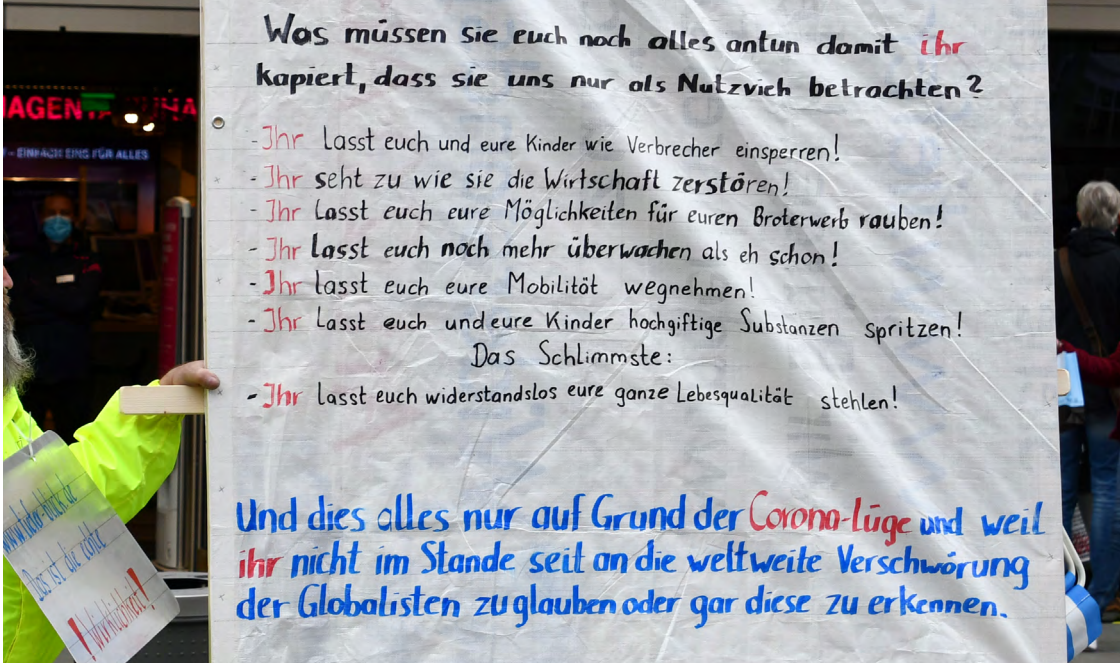 Was müssen sie euch noch alles antun damit ihr
kapiert, dass sie uns nur als Nutzvieh betrachten?
- Ihr Lasst euch und eure Kinder wie Verbrecher einsperren!
- Ihr seht zu wie sie die Wirtschaft zerstören!
- Ihr Lasst euch eure Möglichkeiten für euren Broterwerb rauben!
- Ihr lasst euch noch mehr überwachen als eh schon!
- Ihr lasst euch eure Mobilität wegnehmen!
- Ihr Lasst euch und eure Kinder hochgiftige Substanzen spritzen!
Das Schlimmste:
- Ihr lasst euch widerstandslos eure ganze Lebesqualität stehlen!
Und dies alles nur auf Grund der Corona-Lüge und weil
ihr nicht im Stande seit an die weltweite Verschwörung
der Globalisten zu glauben oder gar diese zu erkennen.
HAGEN
- EINFACH EINS FÜR ALLES
Das ist die